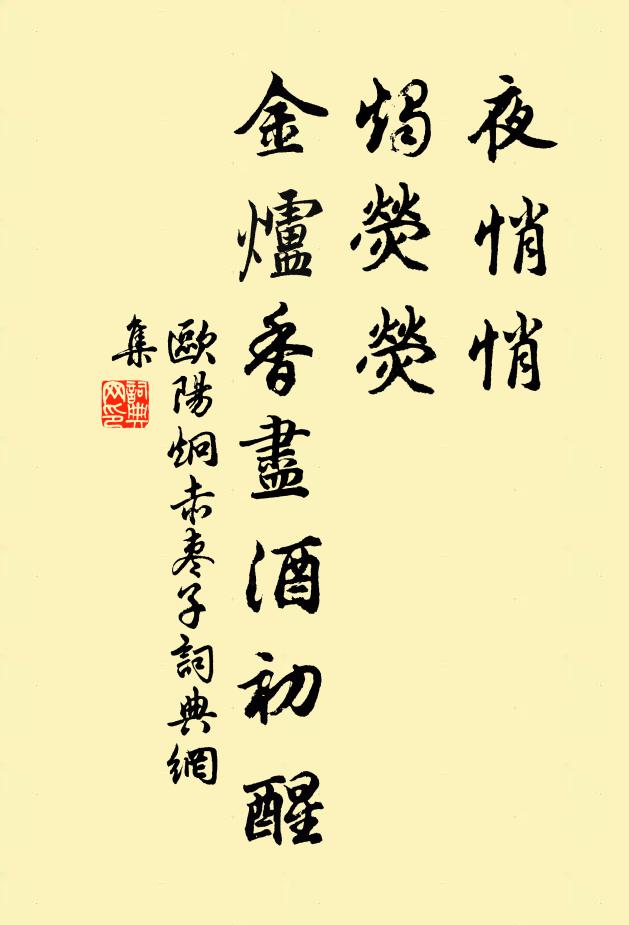 夜悄悄
燭熒熒
金爐香盡酒初醒
歐陽炯赤棗子詞典網
集
詞典網印